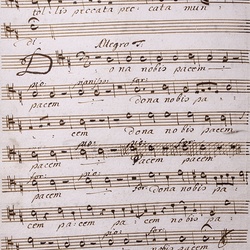 tollis peccata pec cata mun
di.
Allegro
Dona nobis pacem
pia: for:
pacem dona nobis pa
cem dona nobis pacem
pia: for:
pacem dona nobis
pia: for:
pacem dona nobis pa
cem pacem pa cem
for:
pacem